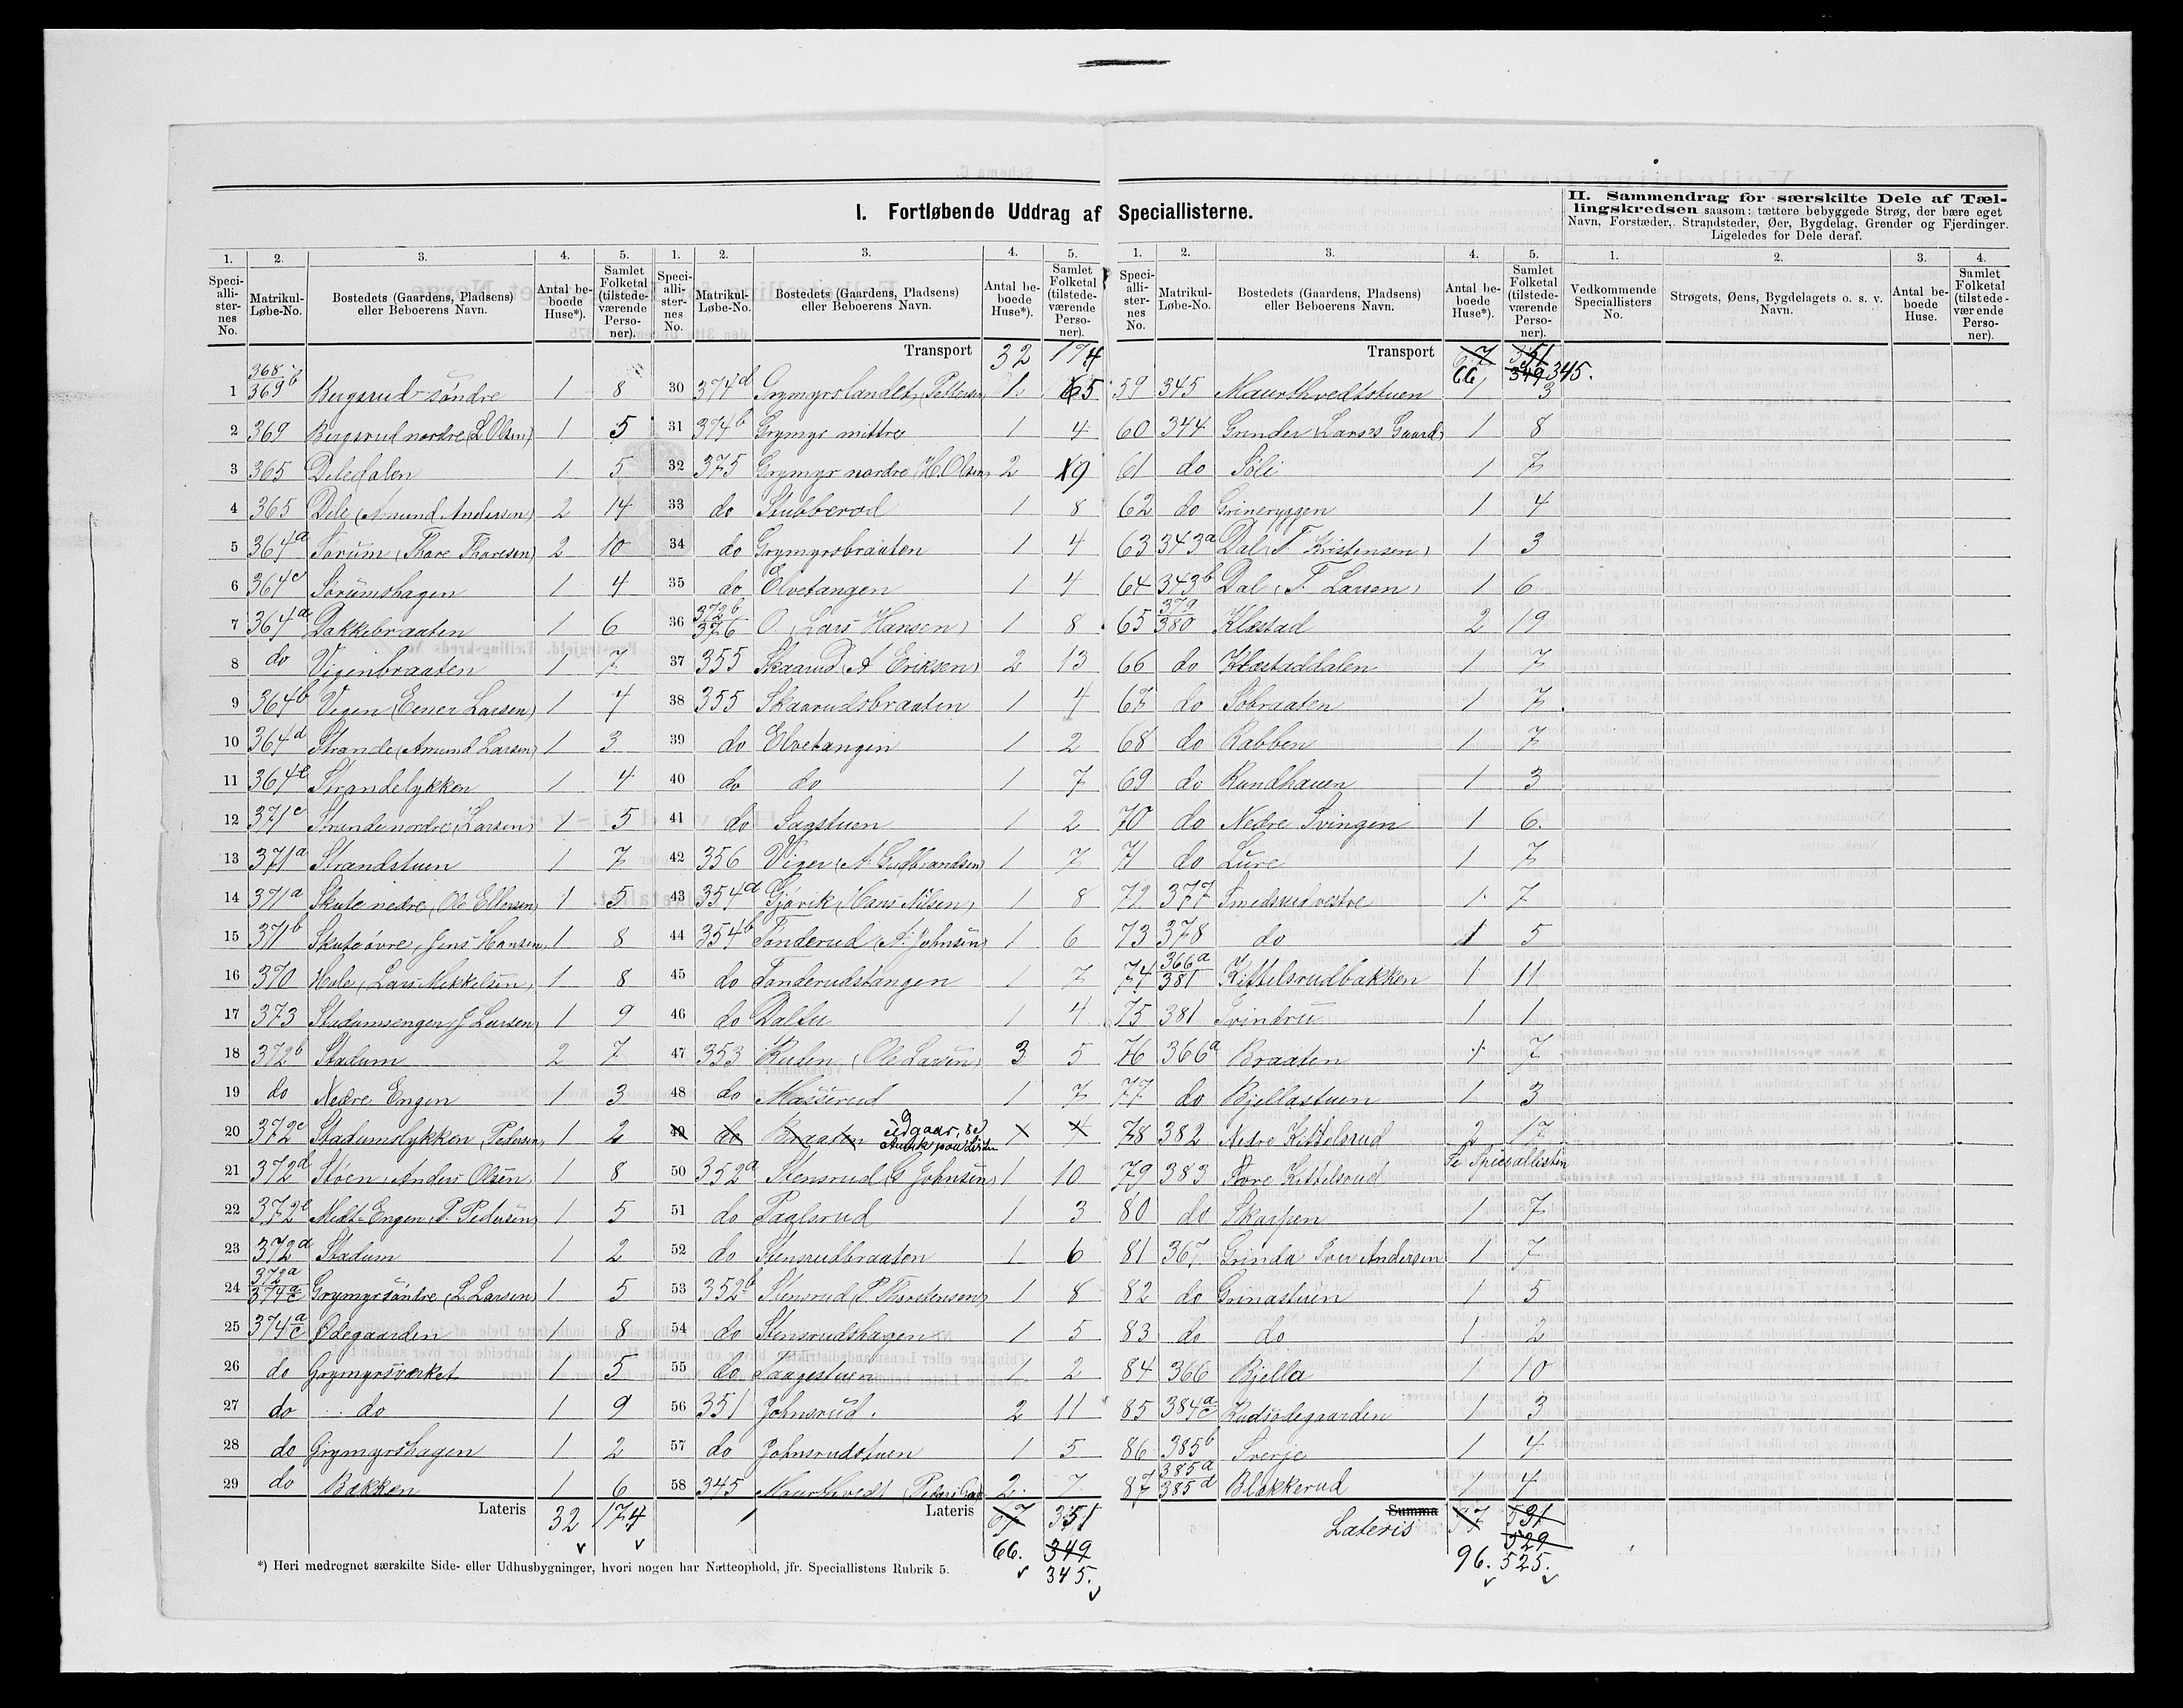 I. Fortløbende Uddrag af Speciallisterne.
II. Sammendrag for særskilte Dele af Tællingskredsen saasom: tættere bebyggede Strøg, der bære eget
Navn, Forstæder, Strandsteder, Øer, Bygdelag, Grender og Fjerdinger.
Ligeledes for Dele deraf.
1. 2. 3. 4. 5.
Speciallisternes No. Matrikul-Løbe-No. Bostedets (Gaardens, Pladsens) eller Beboerens Navn. Antal beboede Huse*). Samlet Folketal (tilstedeværende Personer).
1 368/369b Bergsrud søndre 1 8
2 369 Bergsrud nordre (L Olsen) 1 5
3 365 Deledalen 1 5
4 365 Dele (Amund Andersen) 2 14
5 364a Sørum (Thore Thoresen) 2 10
6 364c Sørumshagen 1 4
7 364a Dakkebraaten 1 6
8 do Vigenbraaten 1 7
9 364b Vegen (Eener Larsen) 1 4
10 364d Strande (Amund Larsen) 1 3
11 364e Strandelykken 1 4
12 371c Strande nordre (Larsen) 1 5
13 371a Strandstuen 1 7
14 371a Skute nedre (Ole Ellersen) 1 5
15 371b Skute øvre, Jens Hansen 1 8
16 370 Hole (Lars Mikkelsen) 1 8
17 373 Stadumsengen (J Larsen) 1 9
18 372b Stadum 2 7
19 do Nedre Engen 1 3
20 372c Stadumslykken (Pedersen) 1 2
21 372d Støen (Anders Olsen) 1 8
22 372e Midt-Engen, P. Pedersen 1 5
23 372a Stadum 1 2
24 372a/374a c Grymyr søndre (L Larsen) 1 5
25 374a c Ødegaarden 1 8
26 do Grymyrsværket 1 5
27 do do 1 9
28 do Grymyrshagen 1 2
29 do Bakken 1 6
Lateris 32 174
*) Heri medregnet særskilte Side- eller Udhusbygninger, hvori nogen har Natteophold, jfr. Speciallistens Rubrik 5.
1. 2. 3. 4. 5.
Speciallisternes No. Matrikul-Løbe-No. Bostedets (Gaardens, Pladsens) eller Beboerens Navn. Antal beboede Huse*). Samlet Folketal (tilstedeværende Personer).
Transport 32 174
30 374d Grymyrslandet, Pettersen 1 5
31 374b Grymyr mittre 1 4
32 375 Grymyr nordre (H. Olsen) 2 9
33 do Stubberød 1 8
34 do Grymyrsbraaten 1 4
35 do Elvetangen 1 4
36 372b/376 O. (Lars Hansen) 1 8
37 355 Skaarud (A Eriksen) 2 13
38 355 Skaarudsbraaten 1 4
39 do Elvetangen 1 2
40 do do 1 7
41 do Sagstuen 1 2
42 356 Viger (A Gudbrandsen) 1 7
43 354a Gjøvik (Hans Nilsen) 1 8
44 354b Tønderud (A. Johnsen) 1 6
45 do Tønderudstangen 1 7
46 do Dalter 1 4
47 353 Rusen (Ole Larsen) 3 5
48 do Masserud 1 7
49 do Braaten udgaar, se
50 352a Stensrud (G Johnsen) 1 10
51 do Paalsrud 1 3
52 do Stensrudbraaten 1 6
53 352b Stensrud (P. Thorstensen) 1 8
54 do Stensrudshagen 1 5
55 do Taagestuen 1 2
56 351 Johnsrud. 2 11
57 do Johnsrudstuen 1 5
58 345 Maurthvedt 2 7
Lateris 67 351
66. 349
345.
1. 2. 3. 4. 5.
Speciallisternes No. Matrikul-Løbe-No. Bostedets (Gaardens, Pladsens) eller Beboerens Navn. Antal beboede Huse*). Samlet Folketal (tilstedeværende Personer).
Transport 67 351
66 349 345.
59 345 Maurthvedtstuen 1 3
60 344 Grinder Larses Gaard 1 8
61 do Søli 1 7
62 do Grineryggen 1 4
63 343a Dal (T. Kristensen) 1 3
64 343b Dal (T. Larsen) 1 6
65 379/380 Klæstad 2 19
66 do Klæstaddalen 1 7
67 do Søbraaten 1 7
68 do Rabben 1 7
69 do Rundhauen 1 3
70 do Nedre Svingen 1 6
71 do Lure 1 7
72 377 Smedsrud vestre 1 7
73 378 do 1 5
74 366a/381 Kittelsrudbakken 1 11
75 381 Svintru 1 1
76 366a Braaten 1 7
77 do Bjellastuen 1 3
78 382 Nedre Kittelsrud 2 17
79 383 Store Kittelsrud Se Spicallisten
80 do Skarpen 1 7
81 367 Grinda Iver Andersen 1 7
82 do Grinastuen 1 5
83 do do 1 2
84 366 Bjella 1 10
85 384a c Rudsødegaarden 1 3
86 385b Sverje 1 4
87 385a/385d Blekkerud 1 4
Summa
Lateris 97 531
529
96. 525.
1. 2. 3. 4.
Vedkommende Speciallisters No. Strøgets, Øens, Bygdelagets o. s. v. Navn. Antal beboede Huse. Samlet Folketal (tilstedeværende Personer).